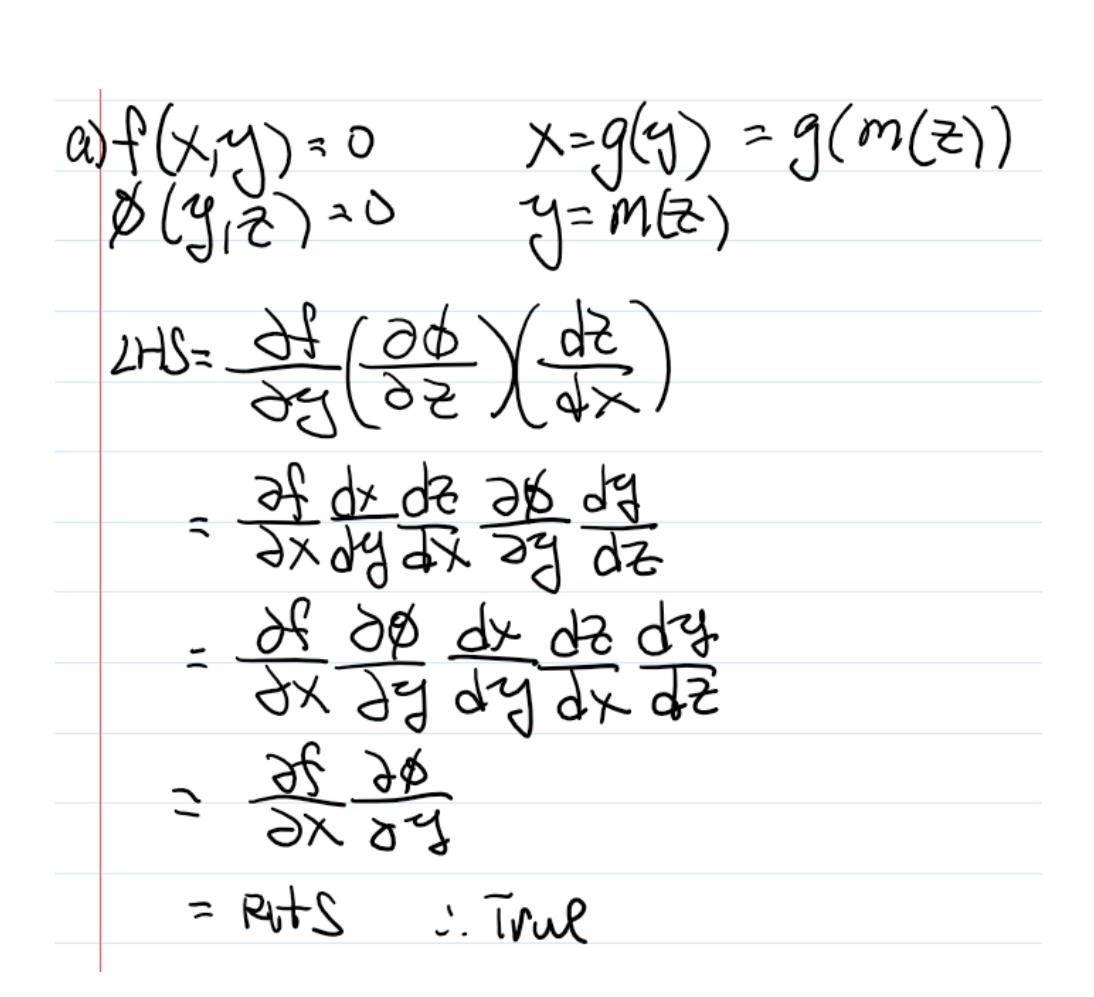 a) f(x,y) = 0 x = g(y) = g(m(z))
ϕ(y,z) = 0 y = m(z)
LHS = ∂f/∂y (∂ϕ/∂z)(dz/dx)
= ∂f/∂x dx/dy dz/dx ∂ϕ/∂y dy/dz
= ∂f/∂x ∂ϕ/∂y dx/dy dz/dx dy/dz
= ∂f/∂x ∂ϕ/∂y
= RHS ∴ True